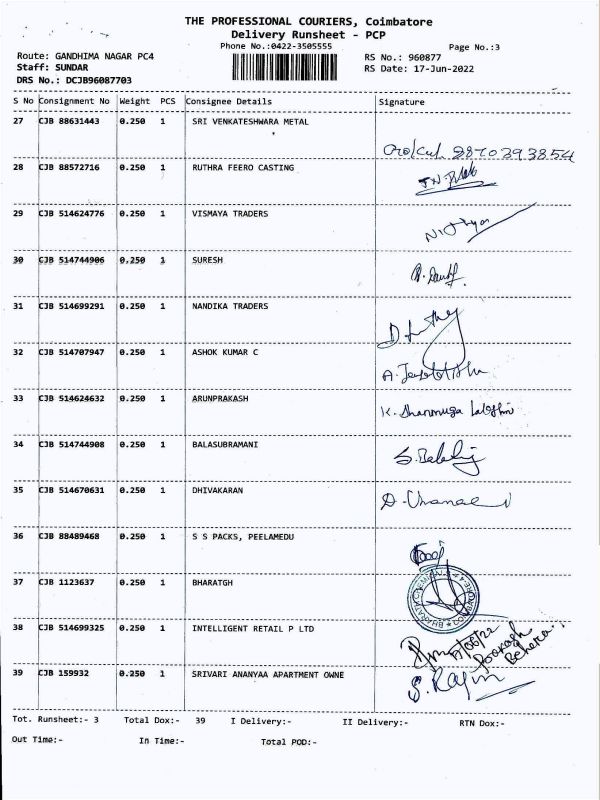 THE PROFESSIONAL COURIERS, Coimbatore
Delivery Runsheet - PCP
Phone No.:0422-3505555
Page No.:3
Route: GANDHIMA NAGAR PC4
RS No.: 960877
Staff: SUNDAR
RS Date: 17-Jun-2022
DRS No.: DCJB96087703
S No Consignment No Weight PCS Consignee Details Signature
27 CJB 88631443 0.250 1 SRI VENKATESHWARA METAL
9870393854
28 CJB 88572716 0.250 1 RUTHRA FEERO CASTING
29 CJB 514624776 0.250 1 VISMAYA TRADERS
30 CJB 514744906 0.250 1 SURESH
31 CJB 514699291 0.250 1 NANDIKA TRADERS
32 CJB 514707947 0.250 1 ASHOK KUMAR C
33 CJB 514624632 0.250 1 ARUNPRAKASH
K. Shanmuga
34 CJB 514744908 0.250 1 BALASUBRAMANI
35 CJB 514670631 0.250 1 DHIVAKARAN
36 CJB 88489468 0.250 1 S S PACKS, PEELAMEDU
37 CJB 1123637 0.250 1 BHARATGH
38 CJB 514699325 0.250 1 INTELLIGENT RETAIL P LTD
Behera
39 CJB 159932 0.250 1 SRIVARI ANANYAA APARTMENT OWNE
Tot. Runsheet:- 3 Total Dox:- 39 I Delivery:- II Delivery:- RTN Dox:-
Out Time:- In Time:- Total POD:-